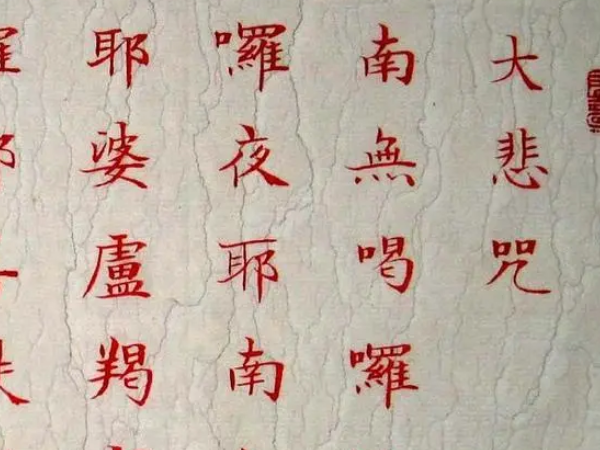 大悲咒
南無喝囉
囉夜耶南
耶婆盧羯